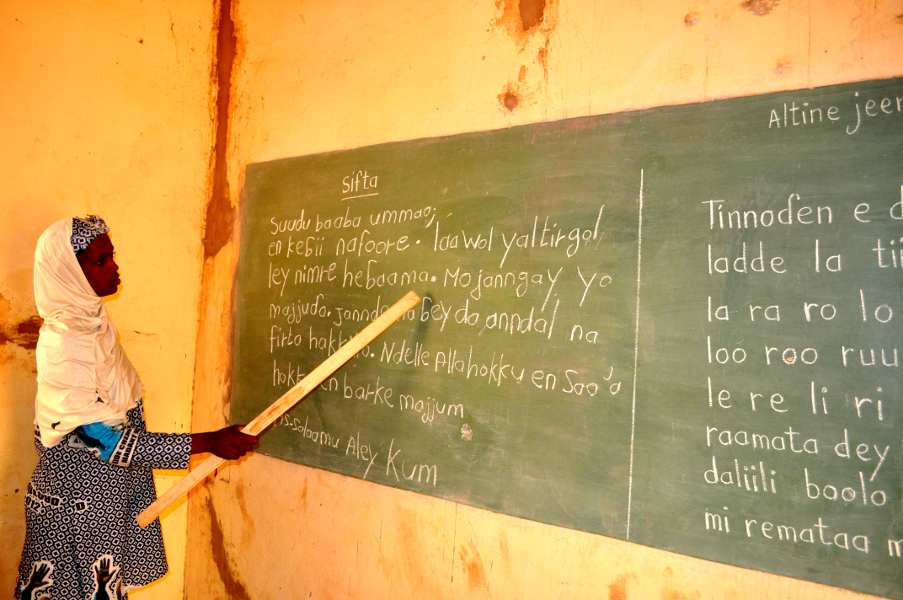 Sifta
Suudu baaba ummao;
en keɓii nafoore. laawol yaltirgol,
ley nimre heɓaama. Mo janngay yo
majjuɗo. ɓeydo anndal na
firto hakkiilo. Ndelle Allah okku en Sao'o
en barke majjum
Aley Kum
Altine jeer
Tinnoɗen e
ladde la tii
la ra ro lo
loo roo ruu
le re li ri
raamata dey
daliili boolo
mi remataa m